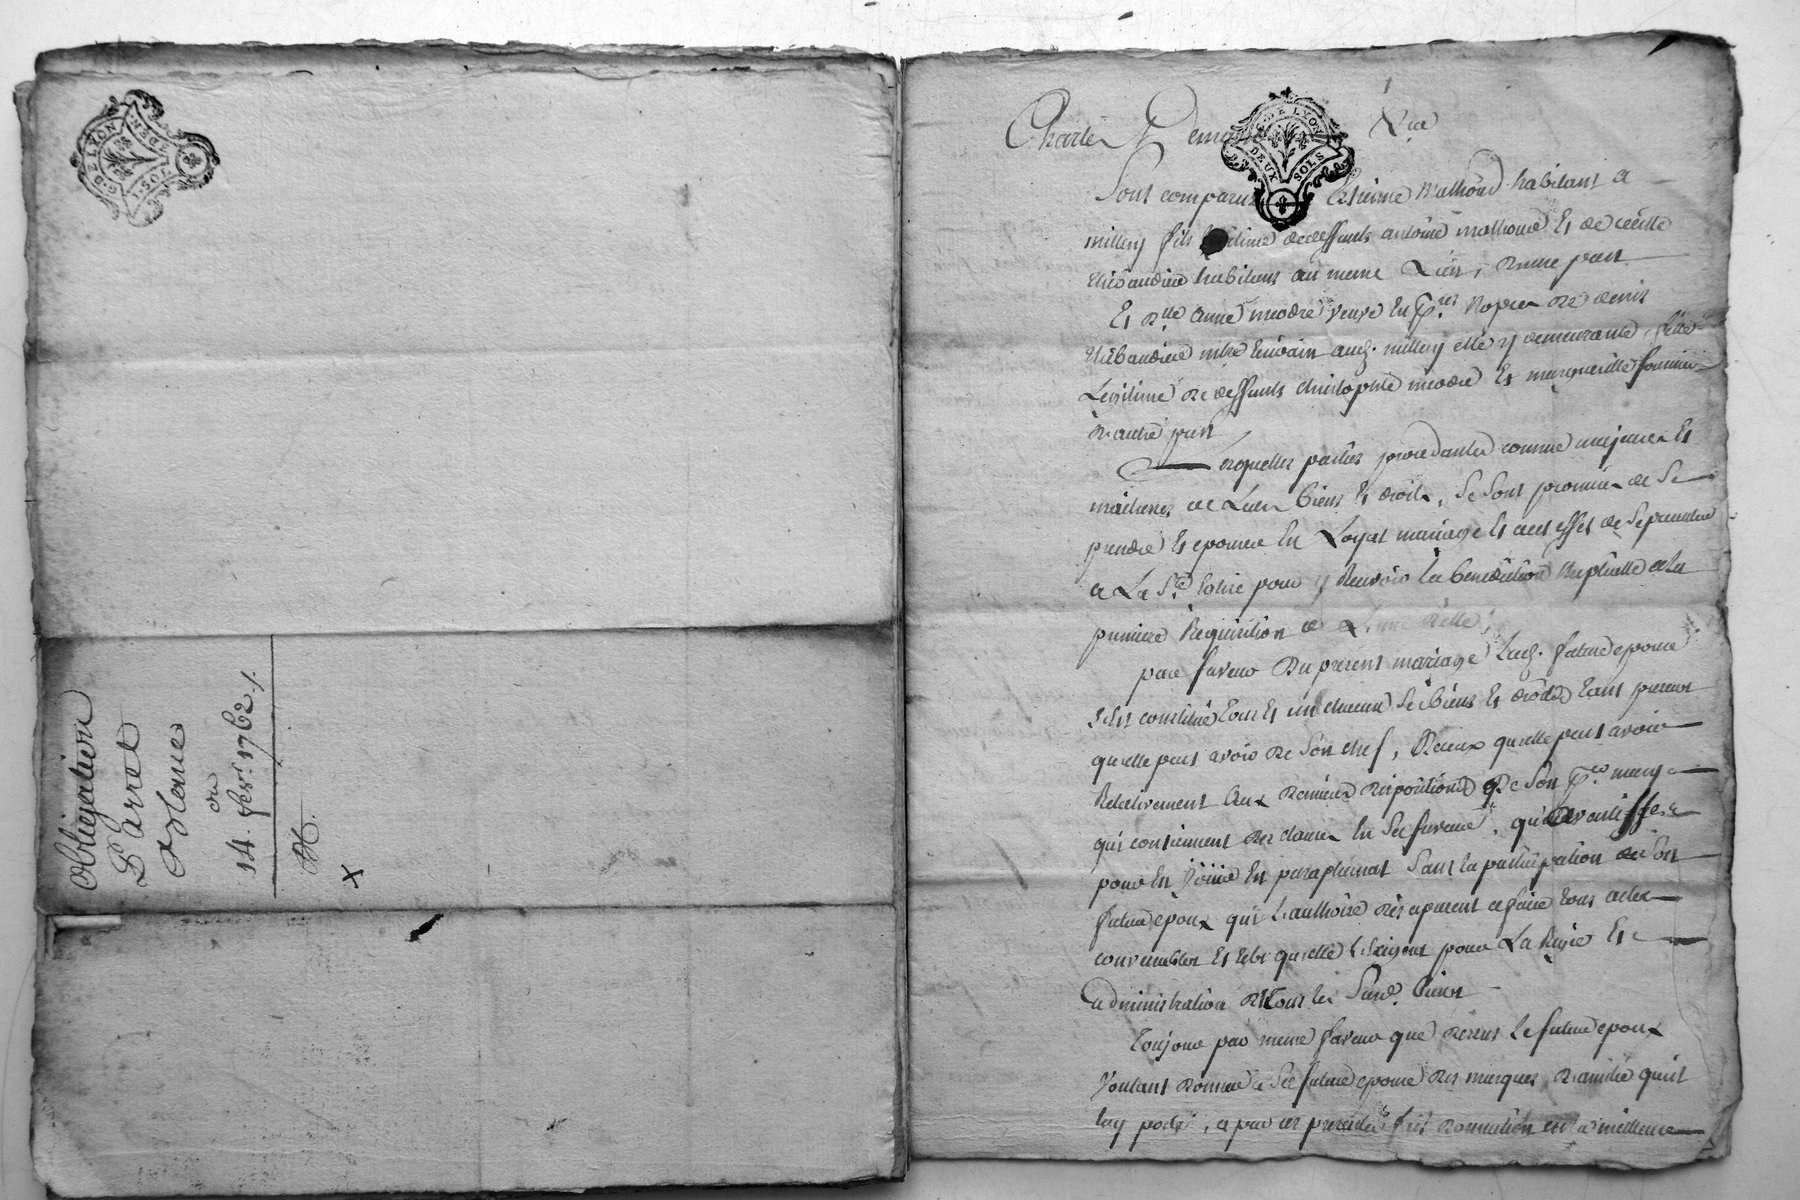 G. DE LYON
DEUX SOLS
obligation
D'arret
du
14. fevr. 1762
X
G. DE LYON
DEUX SOLS
Charles De
Sont comparus Estienne Mathoud habitant a
millery fils Legitime de deffunts antoine mathoud Et de cecille
thibaudier habitans au meme Lieu, D'une part
Et Dlle anne veuve En Pres Nopces De denis
thibaudier mtre Ecrivain aud. millery elle y demeurante, fille
Legitime De deffunts christophle Et marguerite
D'autre part
Lesquelles parties procedantes comme majeures Et
maitresses de Leurs biens Et droits, Se Sont promises de Se
prendre Et epouser En Loyal mariage Et a cet effet de Se presenter
a La Ste Eglise pour y Recevoir La benediction Nuptialle a la
premiere Requisition de L'une d'elles;
par faveur Du present mariage Lad. future epouse
s'est constitué tous Et un chacuns Ses biens Et droits tant presens
qu'elle peut avoir De Son chef, D'eux qu'elle peut avoir
Relativement Aux dernieres dispositions De Son Per mary
qui contiennent des clauses En Sa faveur,
pour En jouir En paraphernal Sans La participation de Son
futur epoux qui L'authorise des apresent a faire tous actes
convenables Et tels qu'elle L'exigera pour La Regie Et
administration De tous Les Susd. biens
Toujours par meme faveur que dessus Le futur epoux
Voulant donner a Sa future epouse des marques D'amitié qu'il
luy porte, a par ces presentes fait donnation a meilleure